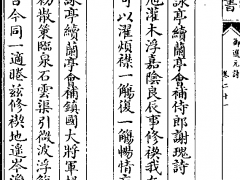 書
御選元詩
卷二十一
詠亭續蘭亭會補侍郎謝瑰詩
旭濯木浮嘉陰良辰事修禊我
可以濯煩襟一觴復一觴暢情
詠亭續蘭亭會補鎮國大將軍
初散策臨泉石雲渠引微波浮
古今同一適睠茲修禊地遙岑